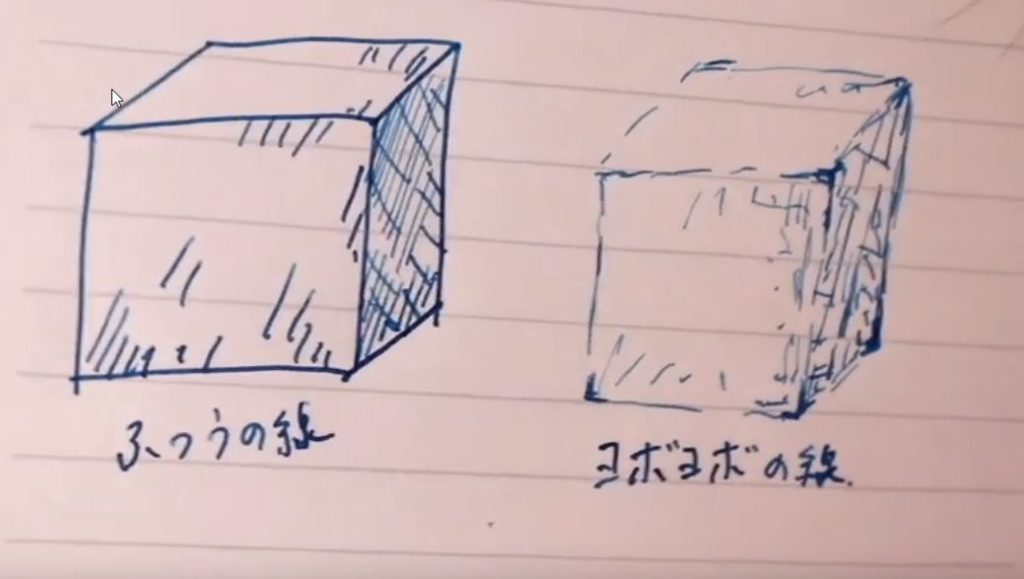 ふつうの線
ヨボヨボの線